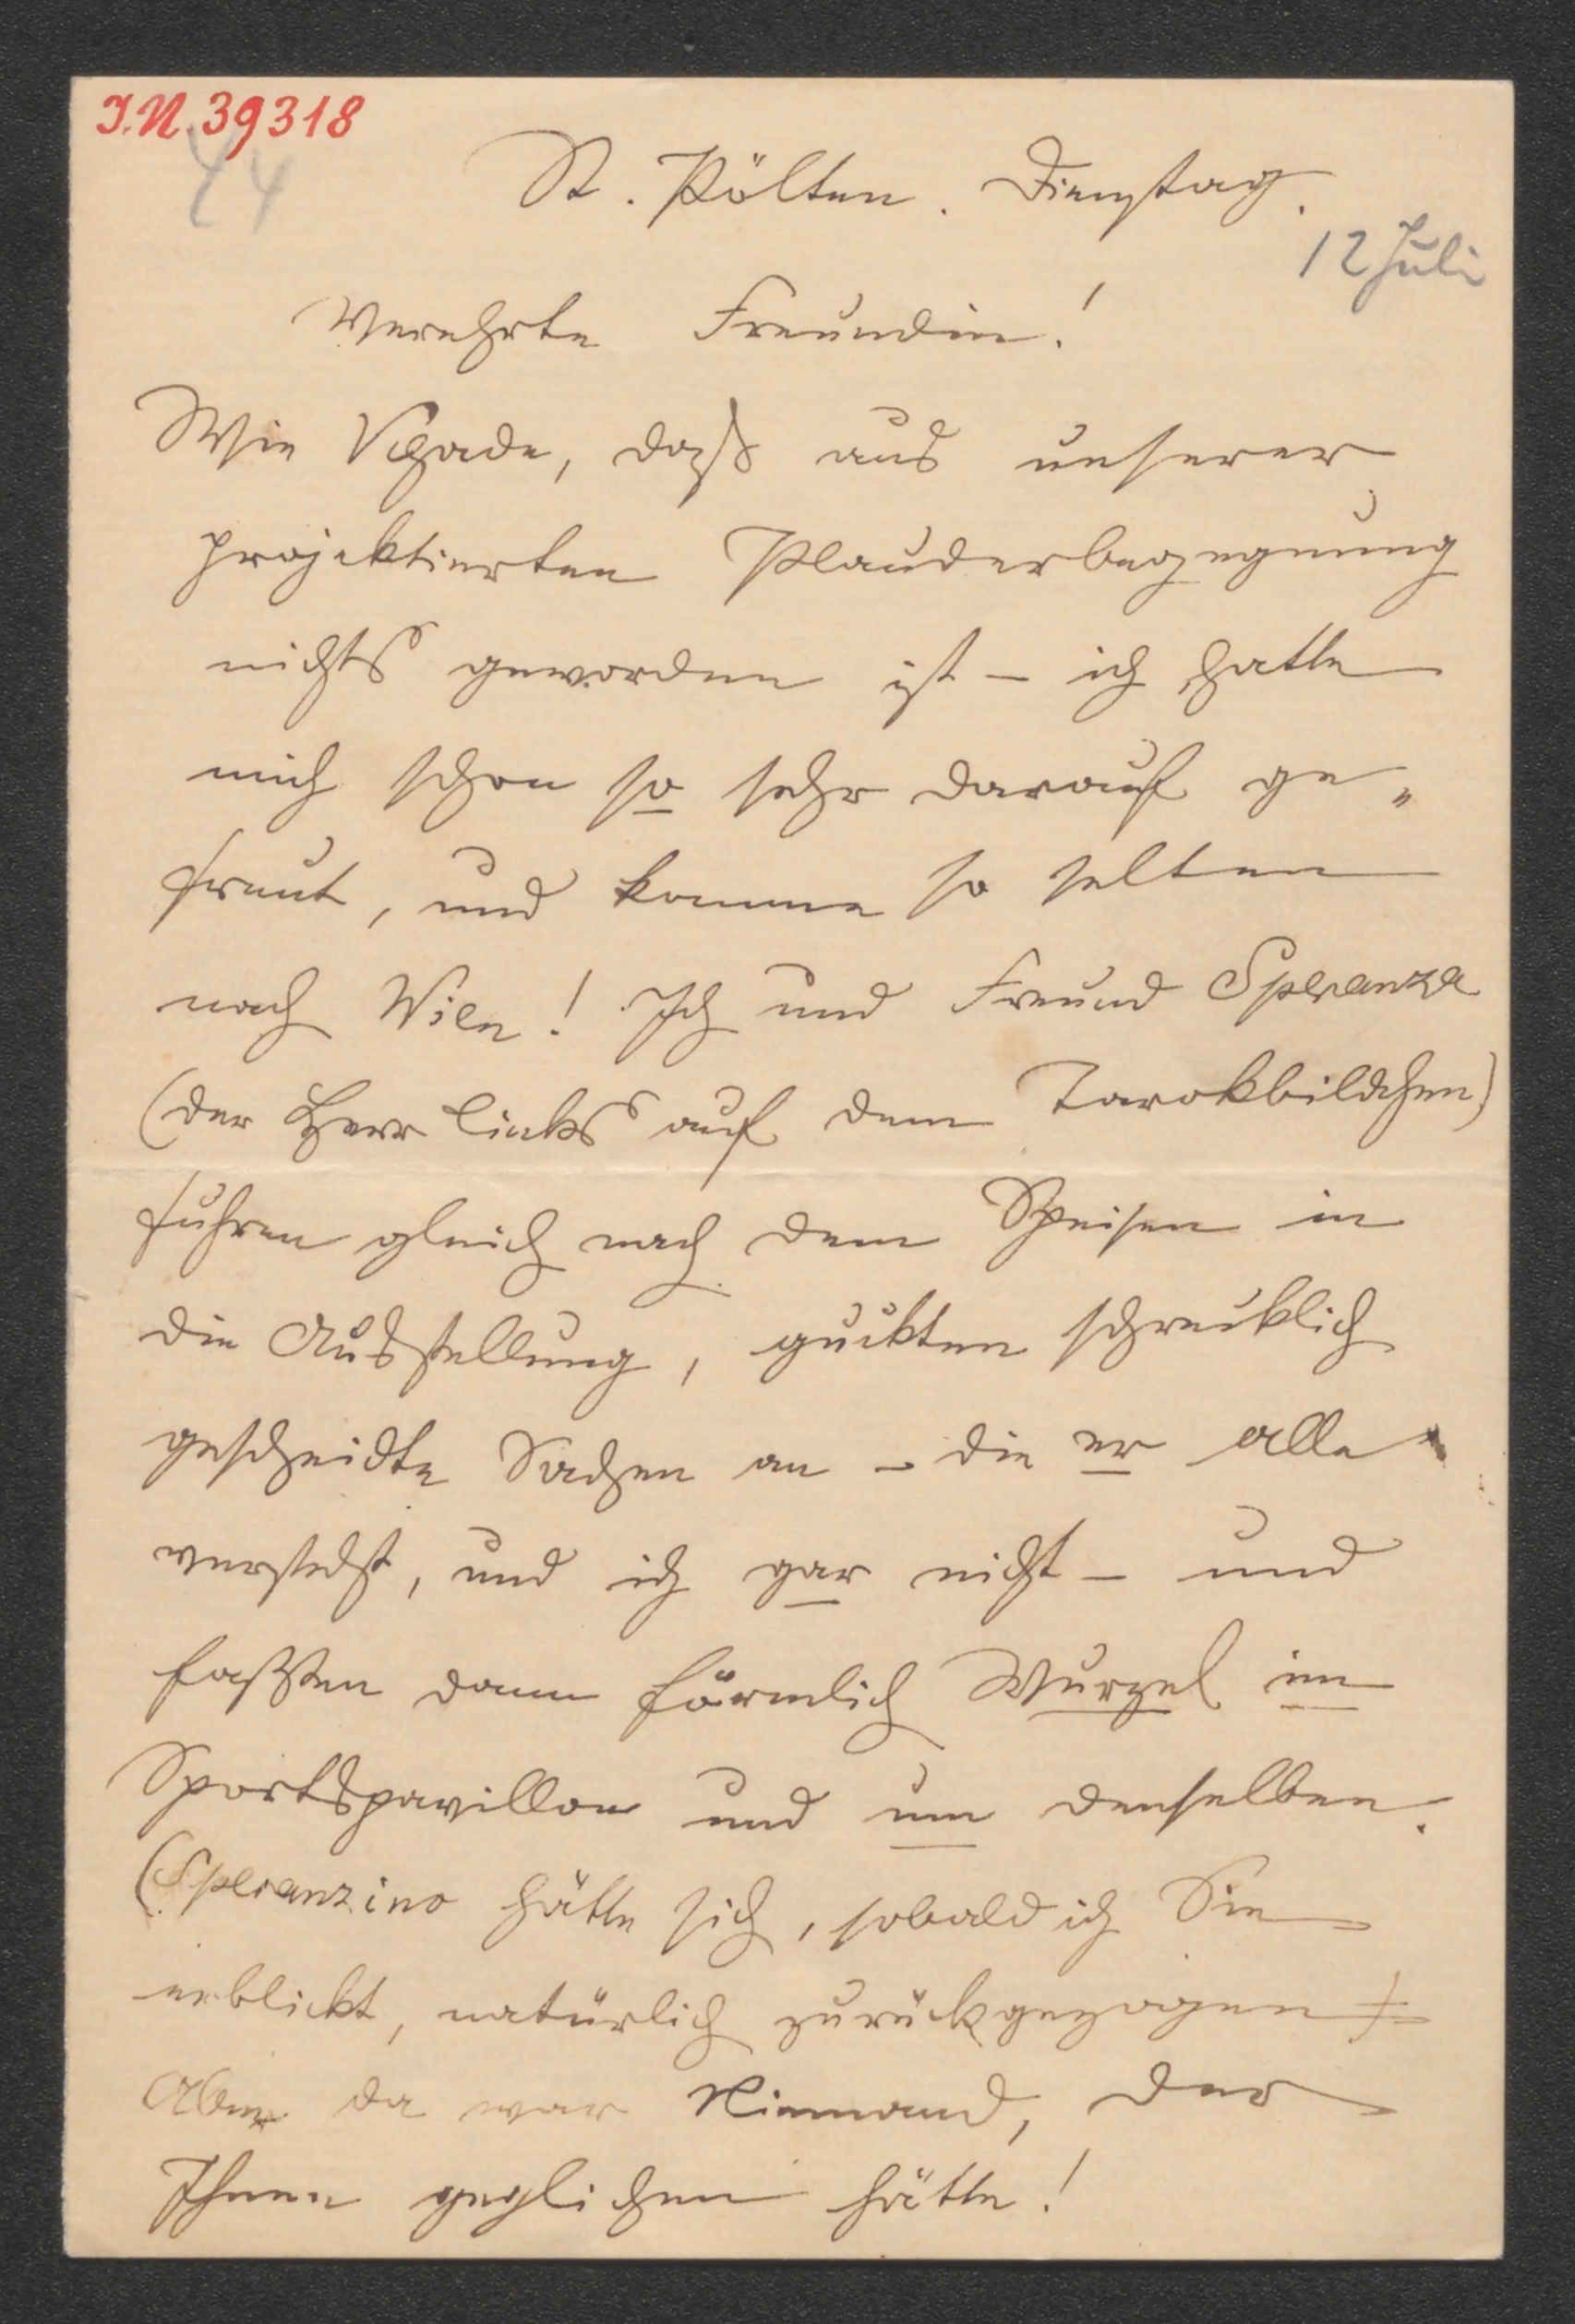 I.N. 39318
44
St. Pölten. Dienstag.
12 Juli
Verehrte Freundin!
Wie Schade, daß aus unserer
projektierten Plauderbegegnung
nichts geworden ist – ich hatte
mich schon so sehr darauf ge„
freut, und komme so selten
nach Wien! Ich und Freund Speranza
(der Herr links auf dem Tarokbildchen)
fuhren gleich nach dem Speisen in
die Ausstellung, guckten schrecklich
gescheidte Sachen an – die er alle
versteht, und ich gar nicht – und
faßten dann förmlich Wurzel im
Sportspavillon und um denselben.
(Speranzino hätte sich, sobald ich Sie
erblickt, natürlich zurückgezogen)
Aber da war Niemand, der
Ihnen geglichen hätte!